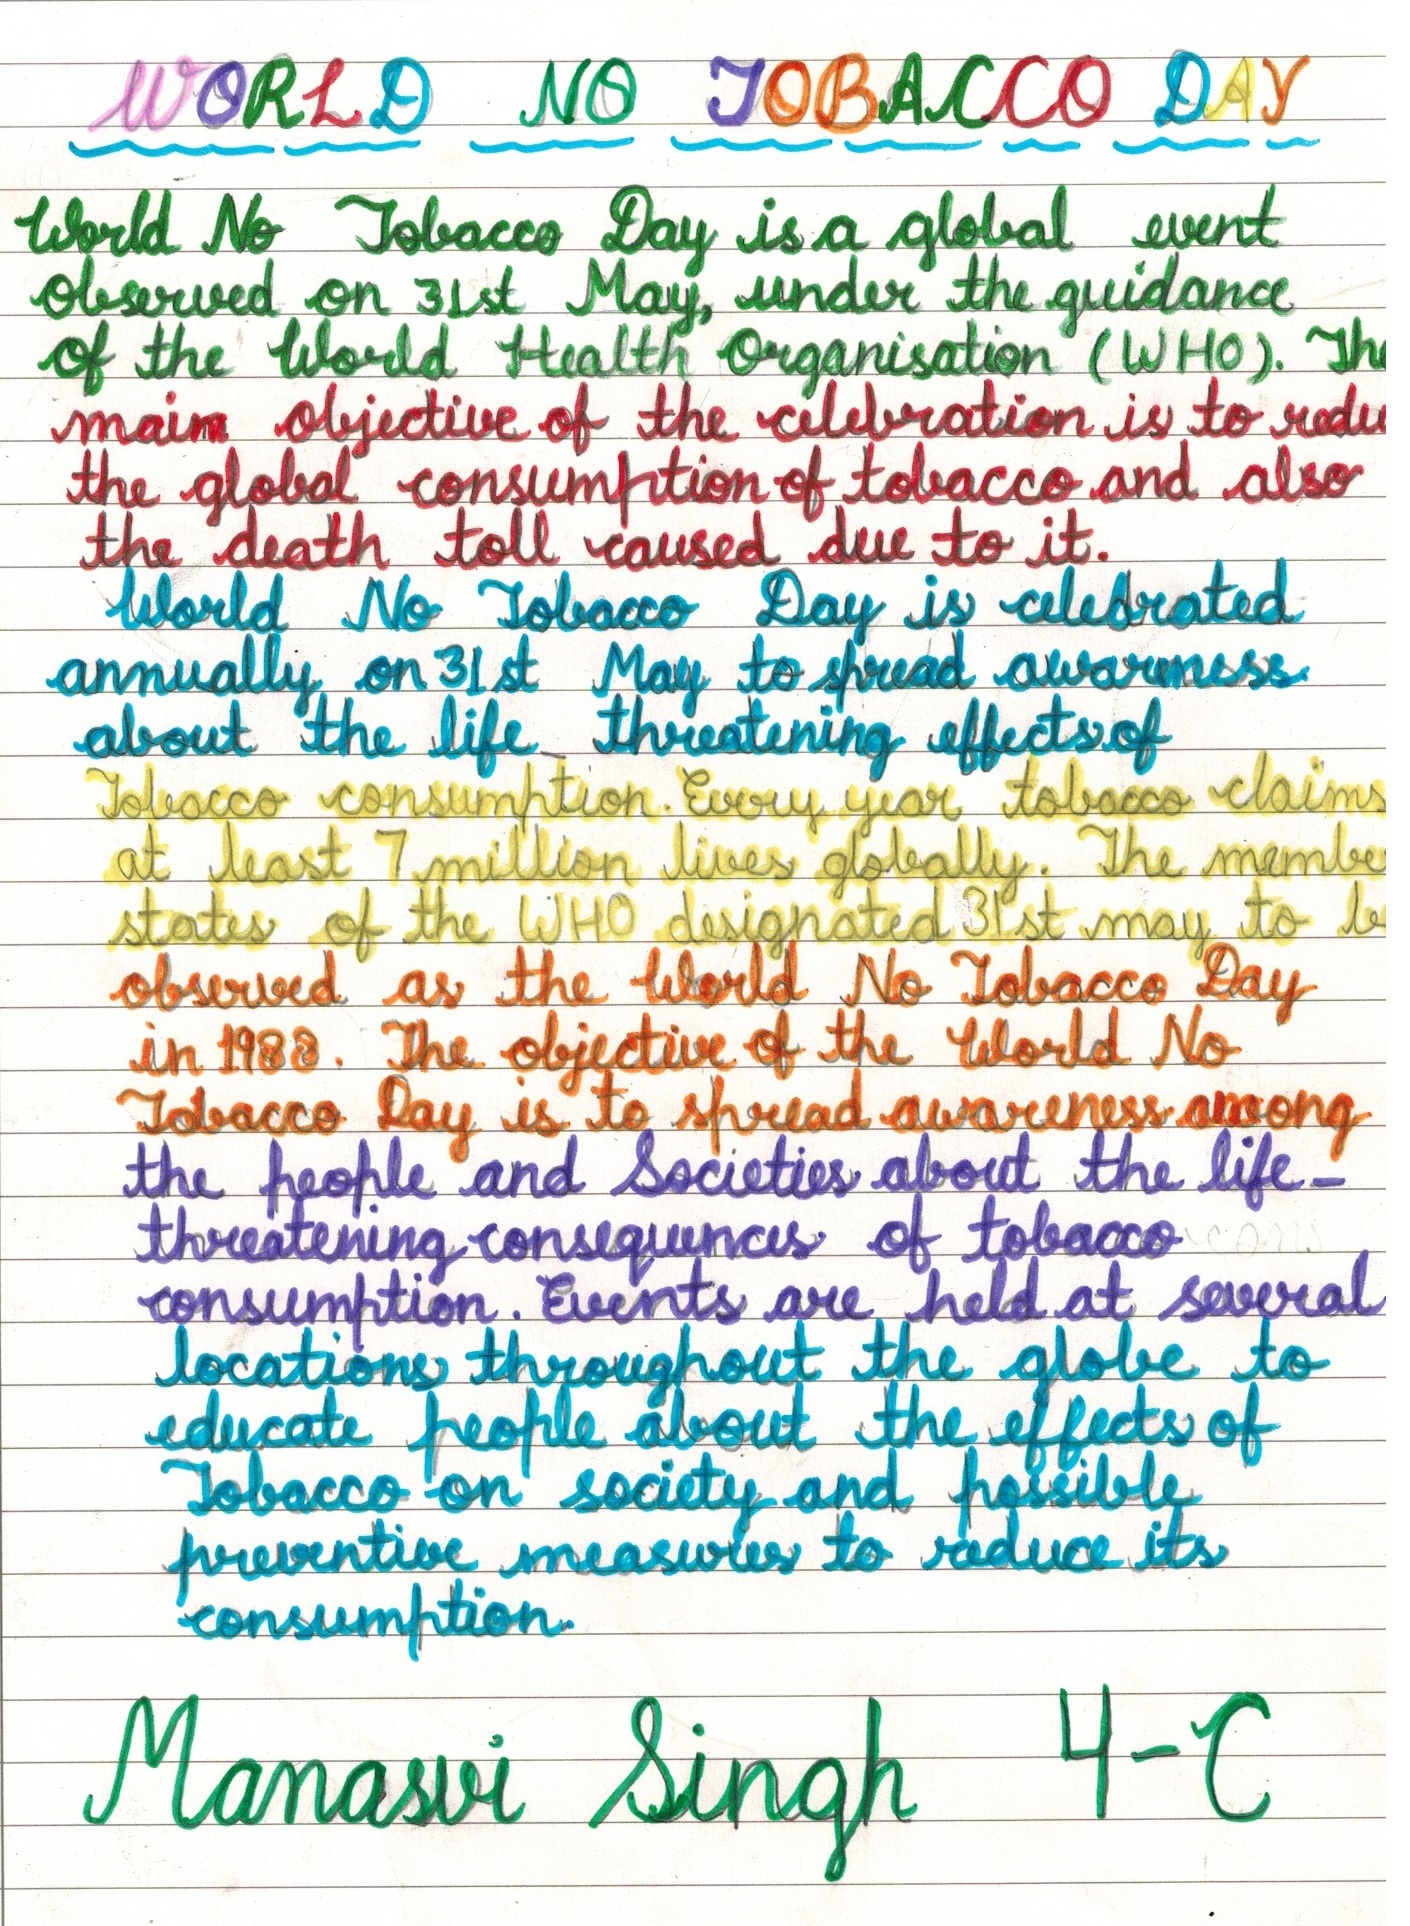 WORLD NO TOBACCO DAY
World No Tobacco Day is a global event
observed on 31st May, under the guidance
of the World Health Organisation (WHO). The
main objective of the celebration is to redu
the global consumption of tobacco and also
the death toll caused due to it.
World No Tobacco Day is celebrated
annually on 31st May to spread awareness
about the life threatening effects of
Tobacco consumption. Every year tobacco claims
at least 7 million lives globally. The membe
states of the WHO designated 31st may to be
observed as the World No Tobacco Day
in 1988. The objective of the World No
Tobacco Day is to spread awareness among
the people and Societies about the life-
threatening consequences of tobacco
consumption. Events are held at several
locations throughout the globe to
educate people about the effects of
Tobacco on society and possible
preventive measures to reduce its
consumption.
Manasvi Singh 4-C